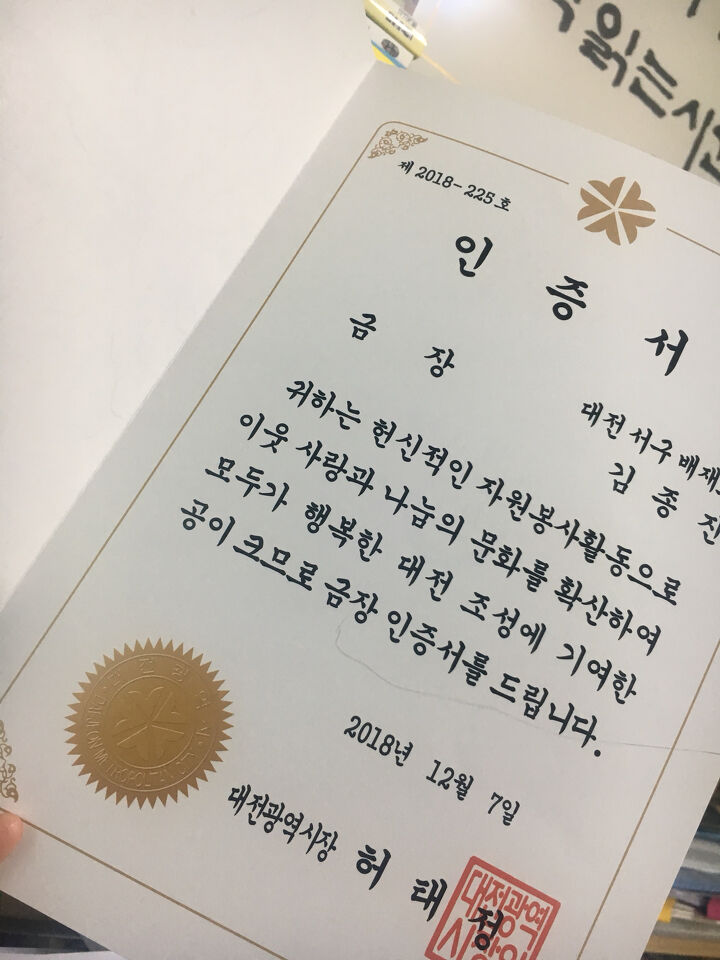 제 2018-225 호
인 증 서
금 장
대전 서구 배재
김 종 진
귀하는 헌신적인 자원봉사활동으로
이웃 사랑과 나눔의 문화를 확산하여
모두가 행복한 대전 조성에 기여한
공이 크므로 금장 인증서를 드립니다.
2018년 12월 7일
대전광역시장 허 태 정
대전광역